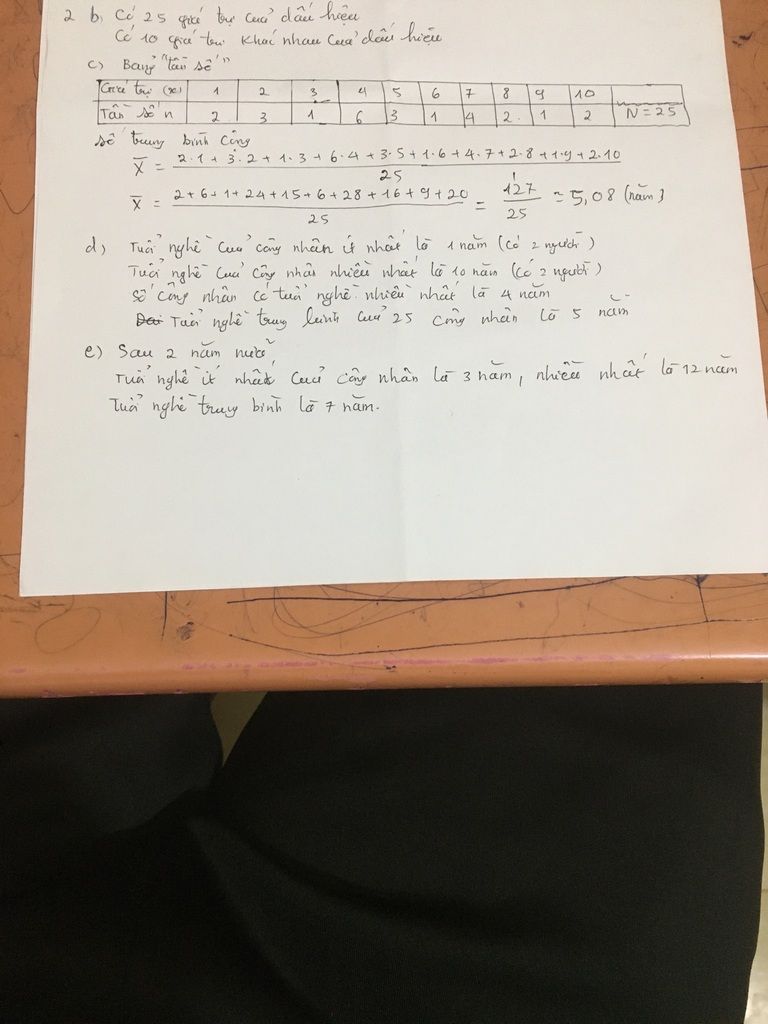 2 b, Có 25 giá trị của dấu hiệu
Có 10 giá trị khác nhau của dấu hiệu
c) Bảng "tần số"
Giá trị (x) 1 2 3 4 5 6 7 8 9 10
Tần số n 2 3 1 6 3 1 4 2 1 2 N = 25
số trung bình cộng
X̅ = (2.1 + 3.2 + 1.3 + 6.4 + 3.5 + 1.6 + 4.7 + 2.8 + 1.9 + 2.10) / 25
X̅ = (2 + 6 + 1 + 24 + 15 + 6 + 28 + 16 + 9 + 20) / 25 = 127 / 25 = 5,08 (năm)
d) Tuổi nghề của công nhân ít nhất là 1 năm (có 2 người)
Tuổi nghề của công nhân nhiều nhất là 10 năm (có 2 người)
Số công nhân có tuổi nghề nhiều nhất là 4 năm
Tuổi nghề trung bình của 25 công nhân là 5 năm
e) Sau 2 năm nữa
Tuổi nghề ít nhất của công nhân là 3 năm, nhiều nhất là 12 năm
Tuổi nghề trung bình là 7 năm.